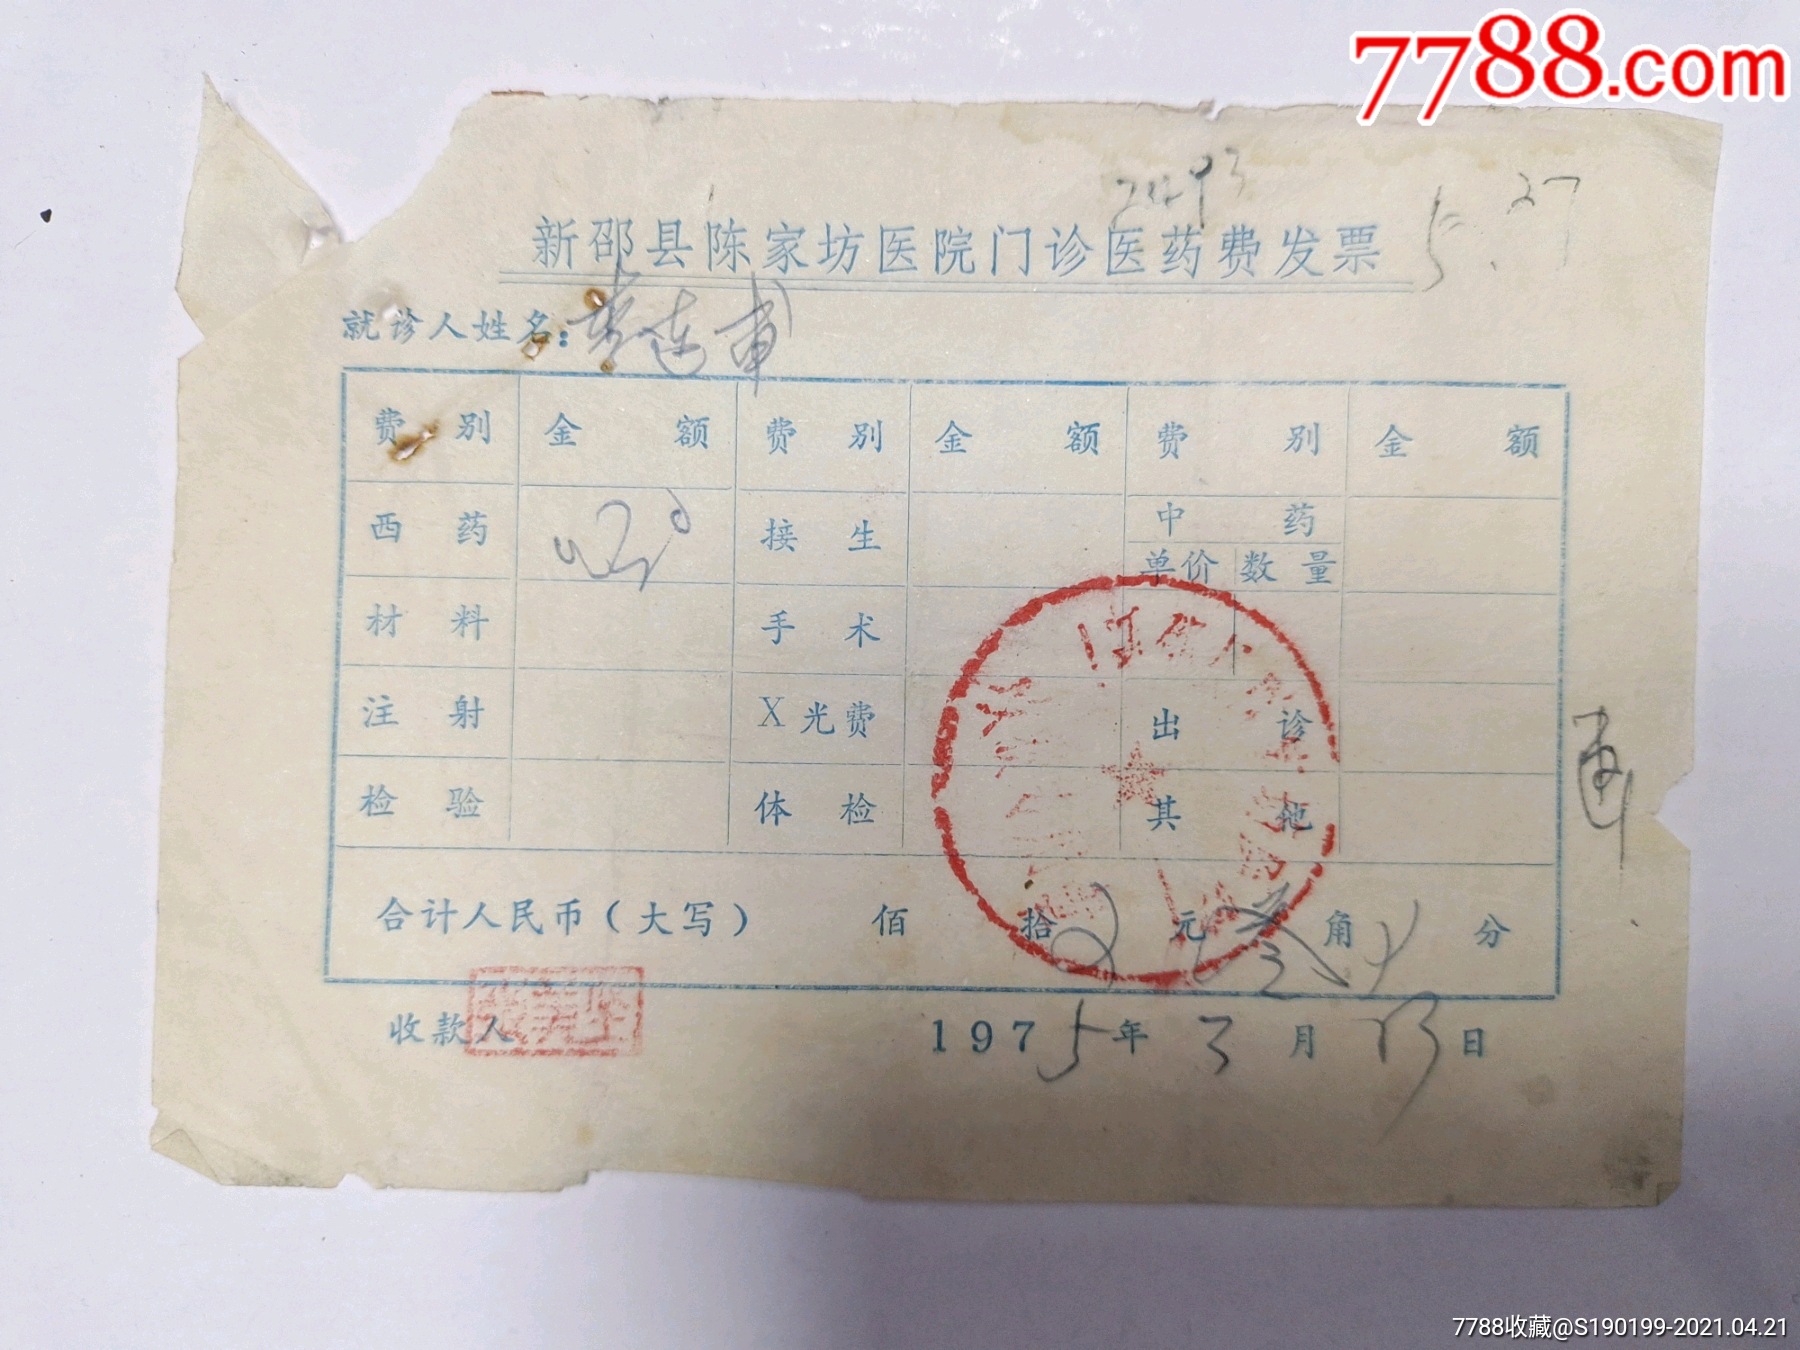 7788.com
5.27
新邵县陈家坊医院门诊医药费发票
就诊人姓名：
费别 金额 费别 金额 费别 金额
西药 接生 中药
单价 数量
材料 手术
注射 X光费 出诊
检验 体检 其他
合计人民币（大写） 佰 拾 元 角 分
收款人 1975年3月13日
7788收藏@S190199-2021.04.21